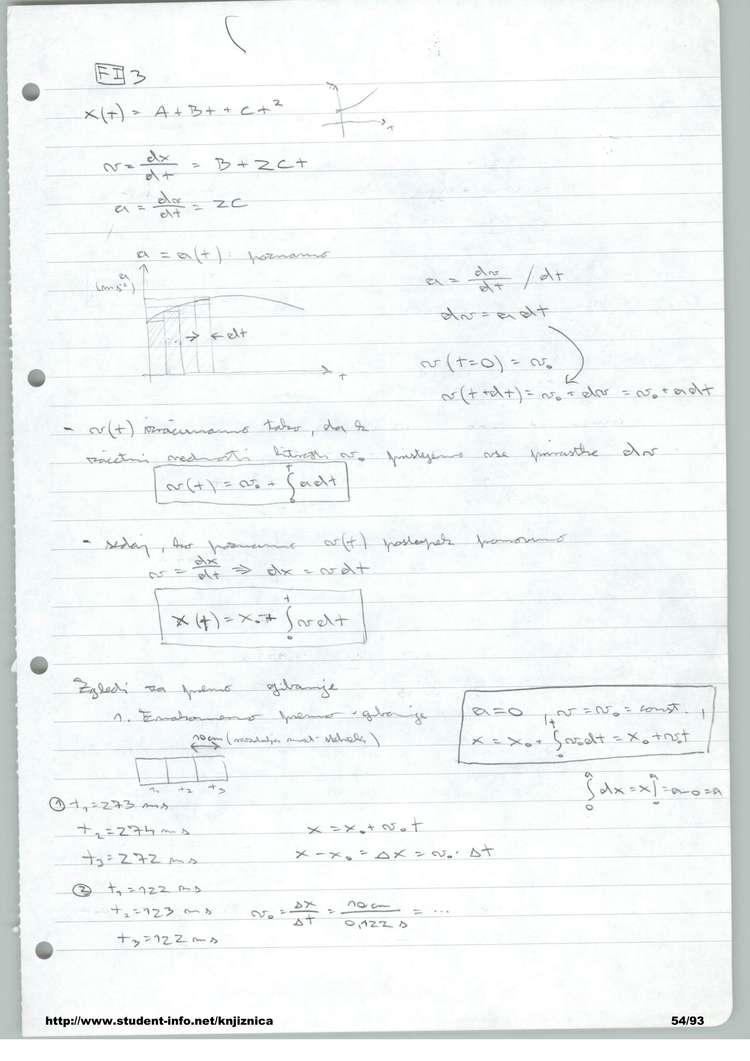 FI 3
x(t) = A + Bt + Ct²
t
v = dx/dt = B + 2Ct
a = dv/dt = 2C
a = a(t) poznamo
a
(ms⁻²)
dt
t
a = dv/dt / dt
dv = a dt
v(t=0) = v₀
v(t+dt) = v₀ + dv = v₀ + a dt
- v(t) izračunamo tako, da k
začetni vrednosti hitrosti v₀ prištejemo vse prirastke dv
v(t) = v₀ + ∫₀ᵗ a dt
- sedaj, ko poznamo v(t) postopek ponovimo
v = dx/dt ⇒ dx = v dt
x(t) = x₀ + ∫₀ᵗ v dt
Zgledi za premo gibanje
1. Enakomerno premo gibanje
a = 0, v = v₀ = const.
x = x₀ + ∫₀ᵗ v₀ dt = x₀ + v₀t
10cm
t₁ t₂ t₃
∫₀ᵃ dx = x|₀ᵃ = a-0 = a
① t₁ = 273 ms
t₂ = 274 ms
t₃ = 272 ms
x = x₀ + v₀ t
x - x₀ = Δx = v₀ · Δt
② t₁ = 122 ms
t₂ = 123 ms
t₃ = 122 ms
v₀ = Δx/Δt = 10 cm/0,122 s = ...
http://www.student-info.net/knjiznica
54/93